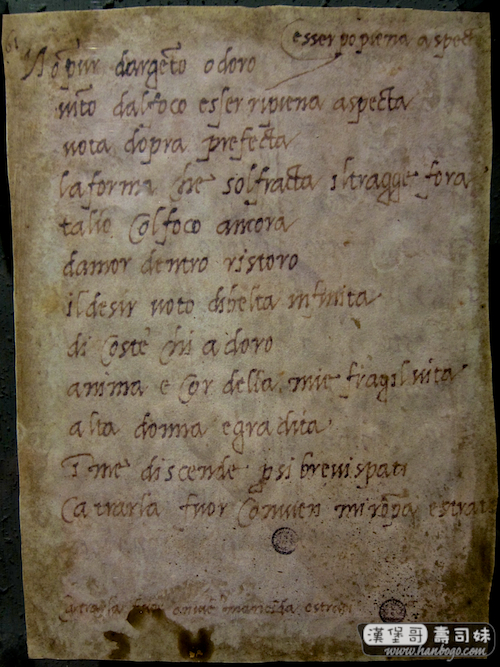 61
esser po piena aspect
Nō pur dargēto o doro
vīto dalfoco esser ripiena aspecta
vota dopra prefecta
la forma che sol fracta il tragge fora
talio col foco ancora
damor dentro ristoro
il desir voto di belta infinita
di coste chi adoro
anima e cor della mie fragil vita
alta donna e gradita
T me discende psi brevi spati
ca trarla fuor convien mi rōpa e strati
漢堡哥壽司妹
www.hanbogo.com